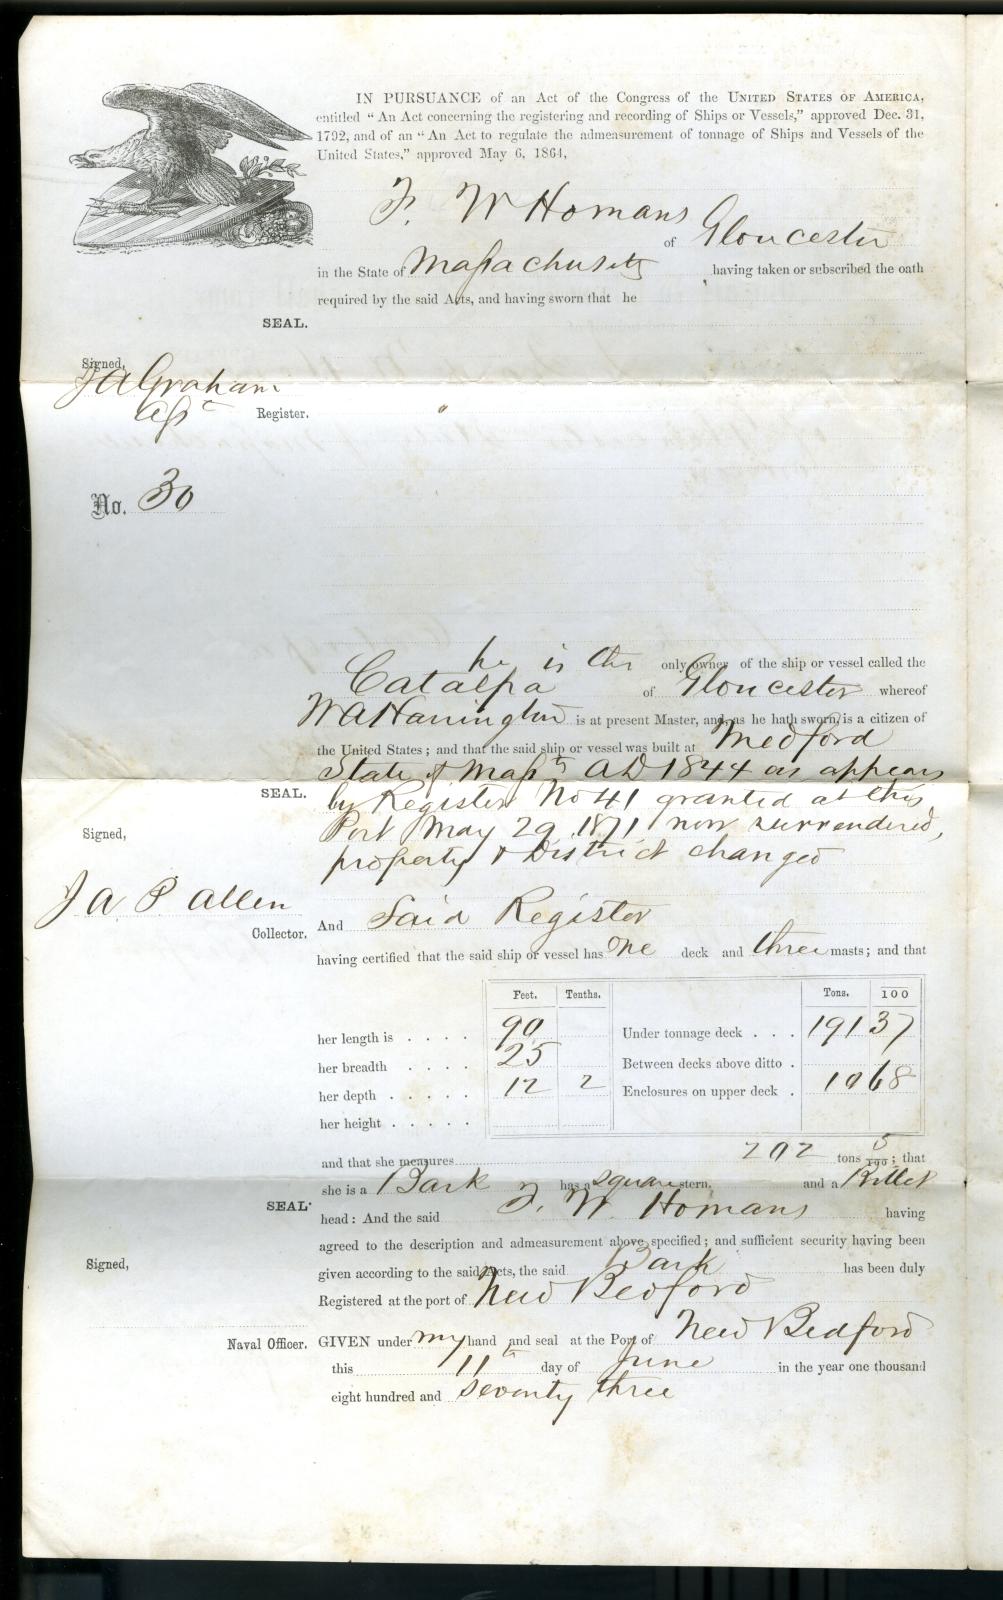 IN PURSUANCE of an Act of the Congress of the UNITED STATES OF AMERICA,
entitled "An Act concerning the registering and recording of Ships or Vessels," approved Dec. 31,
1792, and of an "An Act to regulate the admeasurement of tonnage of Ships and Vessels of the
United States," approved May 6, 1864,
F. W Homans
of Gloucester
in the State of Massachusetts having taken or subscribed the oath
required by the said Acts, and having sworn that he
SEAL.
Signed,
J A Graham
Asst Register.
No. 30
he is the only owner of the ship or vessel called the
Catalpa of Gloucester whereof
W A Harrington is at present Master, and, as he hath sworn, is a citizen of
the United States; and that the said ship or vessel was built at Medford
State of Massts AD 1844 as appears
SEAL. by Register No 41 granted at this
Signed, Port May 29 1871 now surrendered,
property & District changed
J A P Allen
Collector. And Said Register
having certified that the said ship or vessel has One deck and three masts; and that
Feet. Tenths. Tons. 100
her length is . . . . 90 Under tonnage deck . . . 191 37
her breadth . . . . 25 Between decks above ditto .
her depth . . . . . 12 2 Enclosures on upper deck . 10 68
her height . . . . .
and that she measures 202 tons 5/100; that
she is a Bark has a square stern, and a Billet
SEAL. head: And the said F. W. Homans having
agreed to the description and admeasurement above specified; and sufficient security having been
Signed, given according to the said Acts, the said Bark has been duly
Registered at the port of New Bedford
Naval Officer. GIVEN under my hand and seal at the Port of New Bedford
this 11th day of June in the year one thousand
eight hundred and seventy three